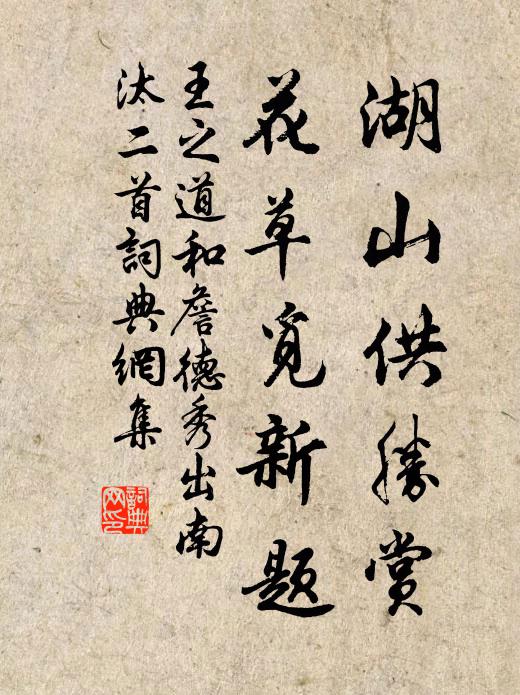 湖山供勝賞
花草覓新題
王之道和詹德秀出南
汰二首詞典網集
詞典网印